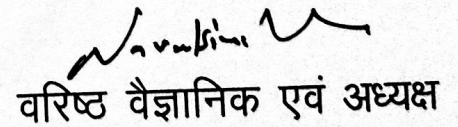 वरिष्ठ वैज्ञानिक एवं अध्यक्ष